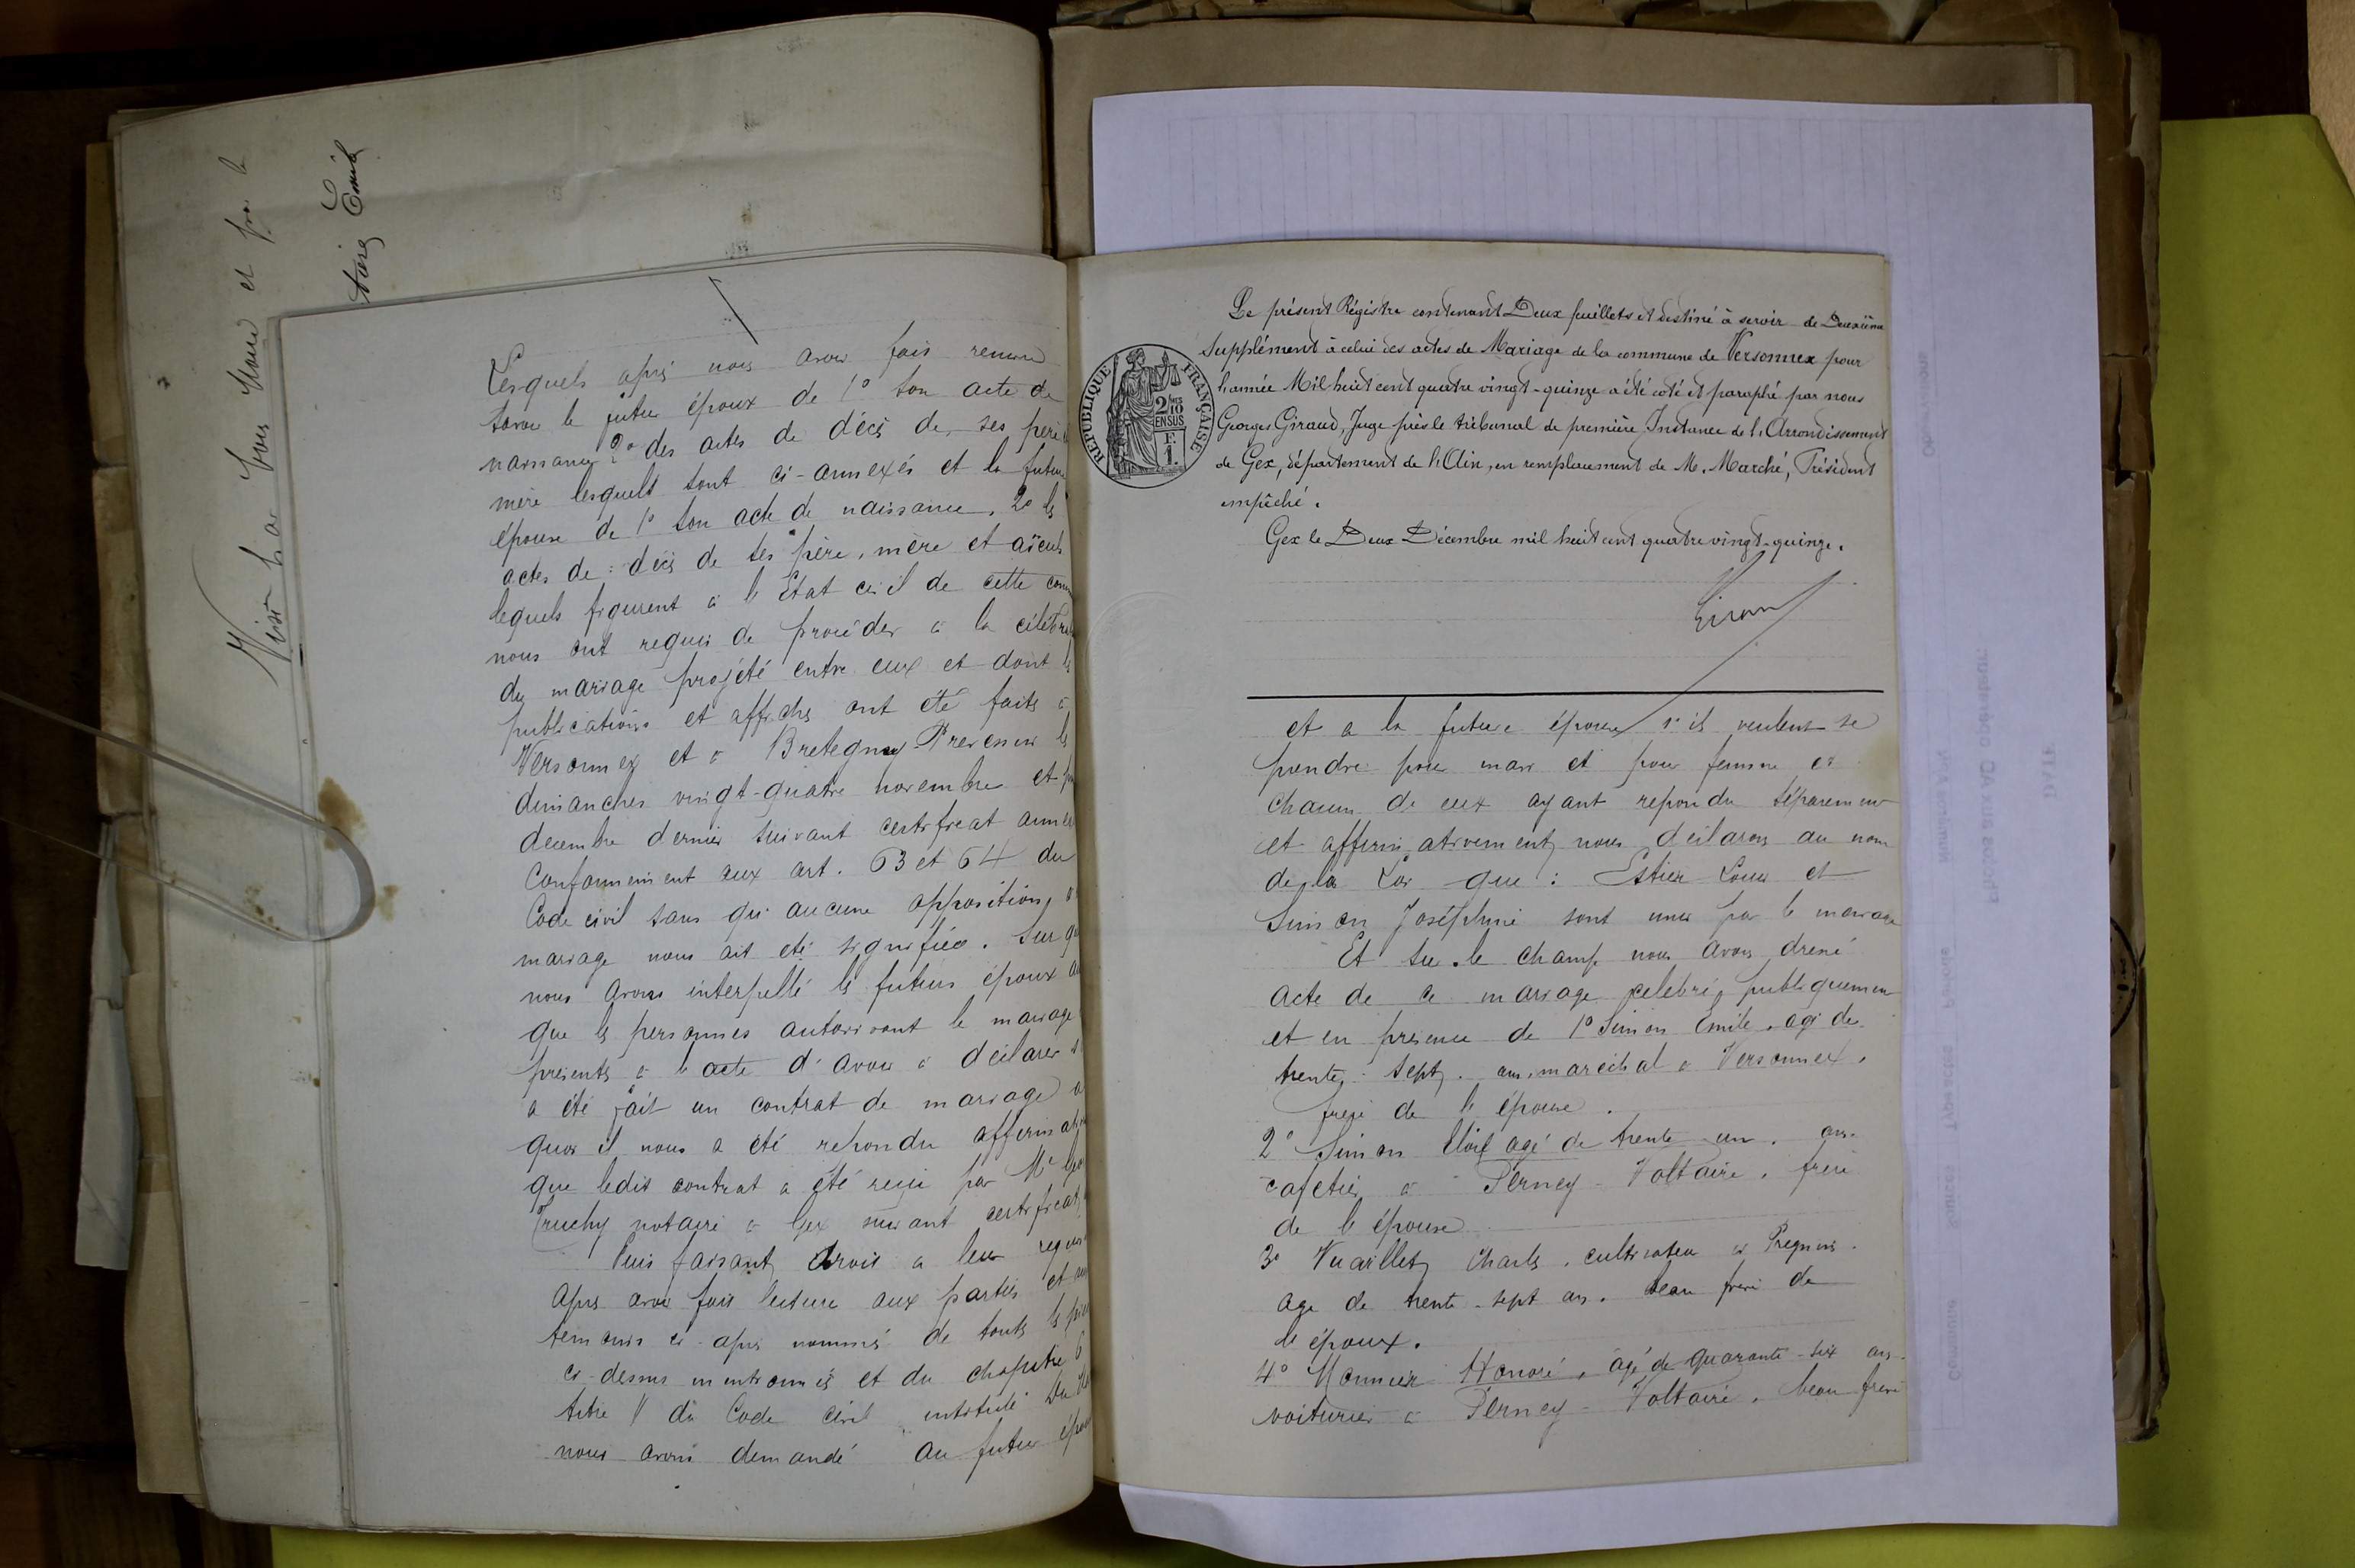 Lesquels après nous avoir fait remise
savoir le futur époux de 1° son acte de
naissance 2° des actes de décès de ses père
mère lesquels sont ci-annexés et la future
épouse de 1° son acte de naissance, 2° les
actes de: décès de ses père, mère et aïeuls
lequels figurent à l'Etat civil de cette com
nous ont requis de procéder à la célébra
du mariage projété entre eux et dont les
publications et affiches ont été faits à
Versonnex et à Bretegny Prevessin les
dimanches vingt-quatre novembre et
decembre dernier suivant certificat annexé
Conformement aux art. 63 et 64 du
Code civil sans qu'aucune opposition, à
mariage nous ait été signifiée. Sur
nous avons interpellé les futurs époux
que les personnes autorisant le mariage
présents à l'acte d'avoir à déclarer s
a été fait un contrat de mariage à
quoi il nous a été repondu affirmat
que ledit contrat a été reçu par Me
Truchy notaire à Gex suivant certificat
Puis faisant droit à leur requis
après avoir fait lecture aux parties et aux
temoins ci-après nommés de toutes les
ci-dessus mentionnés et du chapitre 6
titre V du Code civil intitulé Du
nous avons demandé au futur épou
Visa
Emile
REPUBLIQUE FRANÇAISE
2 10
EN SUS
F.
1.
Le présent Régistre contenant Deux feuillets et destiné à servir de Deuxième
Supplément à celui des actes de Mariage de la commune de Versonnex pour
l'année Mil huit cent quatre vingt-quinze a été coté et paraphé par nous
Georges Giraud, Juge près le tribunal de première Instance de l'Arrondissement
de Gex, département de l'Ain, en remplacement de M. Marché, Président
empêché.
Gex le Deux Décembre mil huit cent quatre vingt-quinze.
Giraud
et a la future épouse s'ils veulent se
prendre pour mari et pour femme et
chacun de eux ayant repondu séparement
et affirmativement, nous déclarons au nom
de la Loi que : Estier Louis et
Simon Joséphine sont unis par le mariage
Et sur le champ nous avons dressé
acte de ce mariage celebré publiquement
et en présence de 1° Simon Emile, agé de
trente-sept, ans, maréchal à Versonnex,
frere de l'épouse.
2° Simon Eloi agé de trente un, ans
cafetier à Ferney-Voltaire, frere
de l'épouse
3° Vuaillet, Charles, cultivateur à Pregnin
age de trente-sept ans, beau frere de
l'époux.
4° Monnier Honoré, âgé de quarante-six ans,
voiturier à Ferney-Voltaire, beau frere